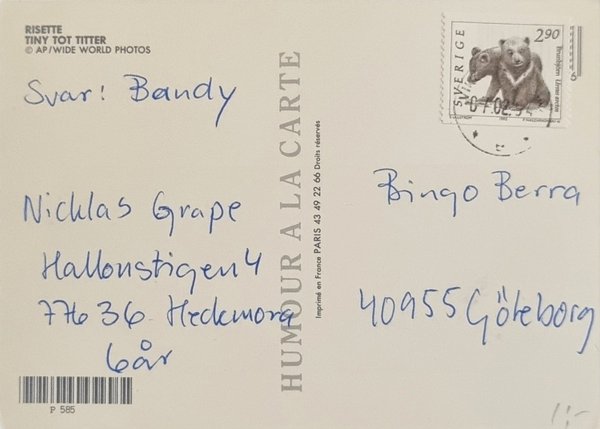 RISETTE
TINY TOT TITTER
© AP/WIDE WORLD PHOTOS
Svar! Bandy
Nicklas Grape
Hallonstigen 4
776 36 Hedemora
6 år
P 585
HUMOUR A LA CARTE
Imprimé en France PARIS 43 49 22 66 Droits réservés
SVERIGE
2.90
Brunbjörn Ursus arctos
Bingo Berra
40955 Göteborg
1:-